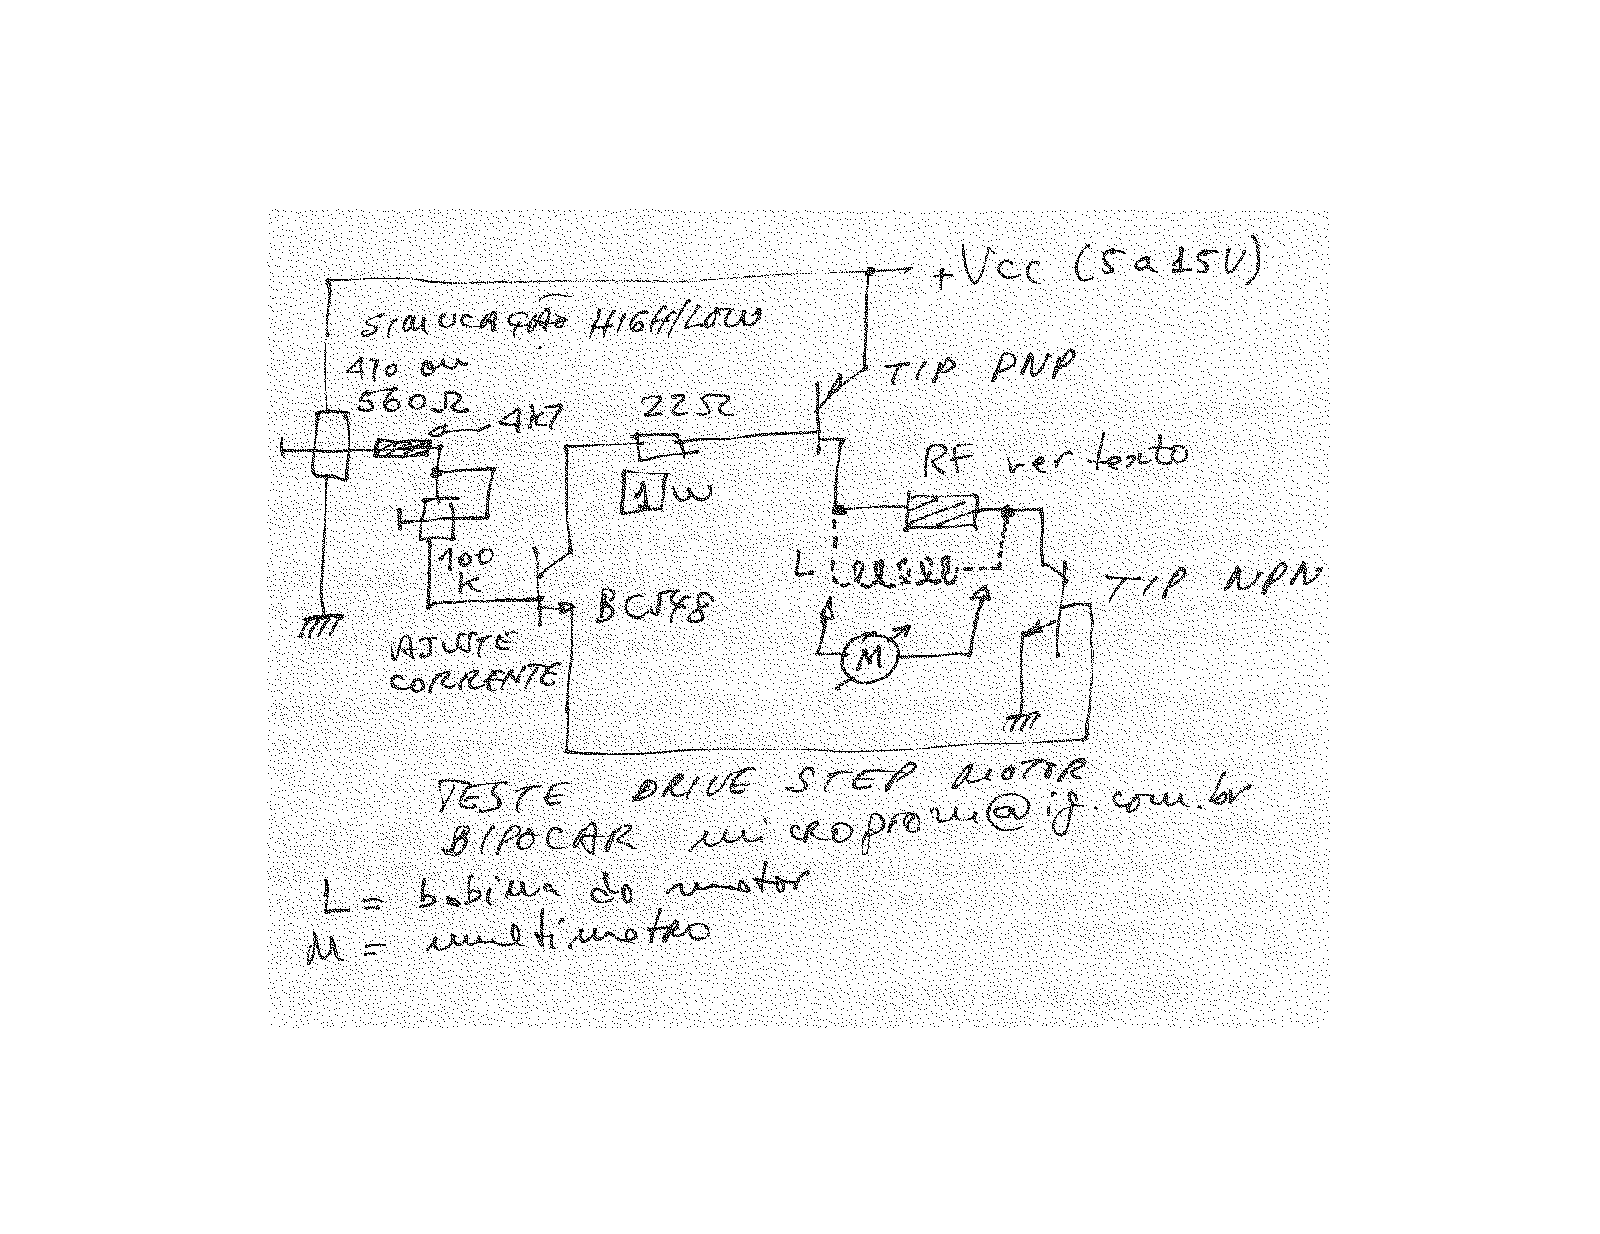 +Vcc (5 a 15V)
SIMULAÇÃO HIGH/LOW
470 ou
560Ω
4k7
22Ω
1W
TIP PNP
RF ver texto
100
K
L
BC548
TIP NPN
AJUSTE
CORRENTE
M
TESTE DRIVE STEP MOTOR
BIPOLAR microprom@ig.com.br
L = bobina do motor
M = multimetro